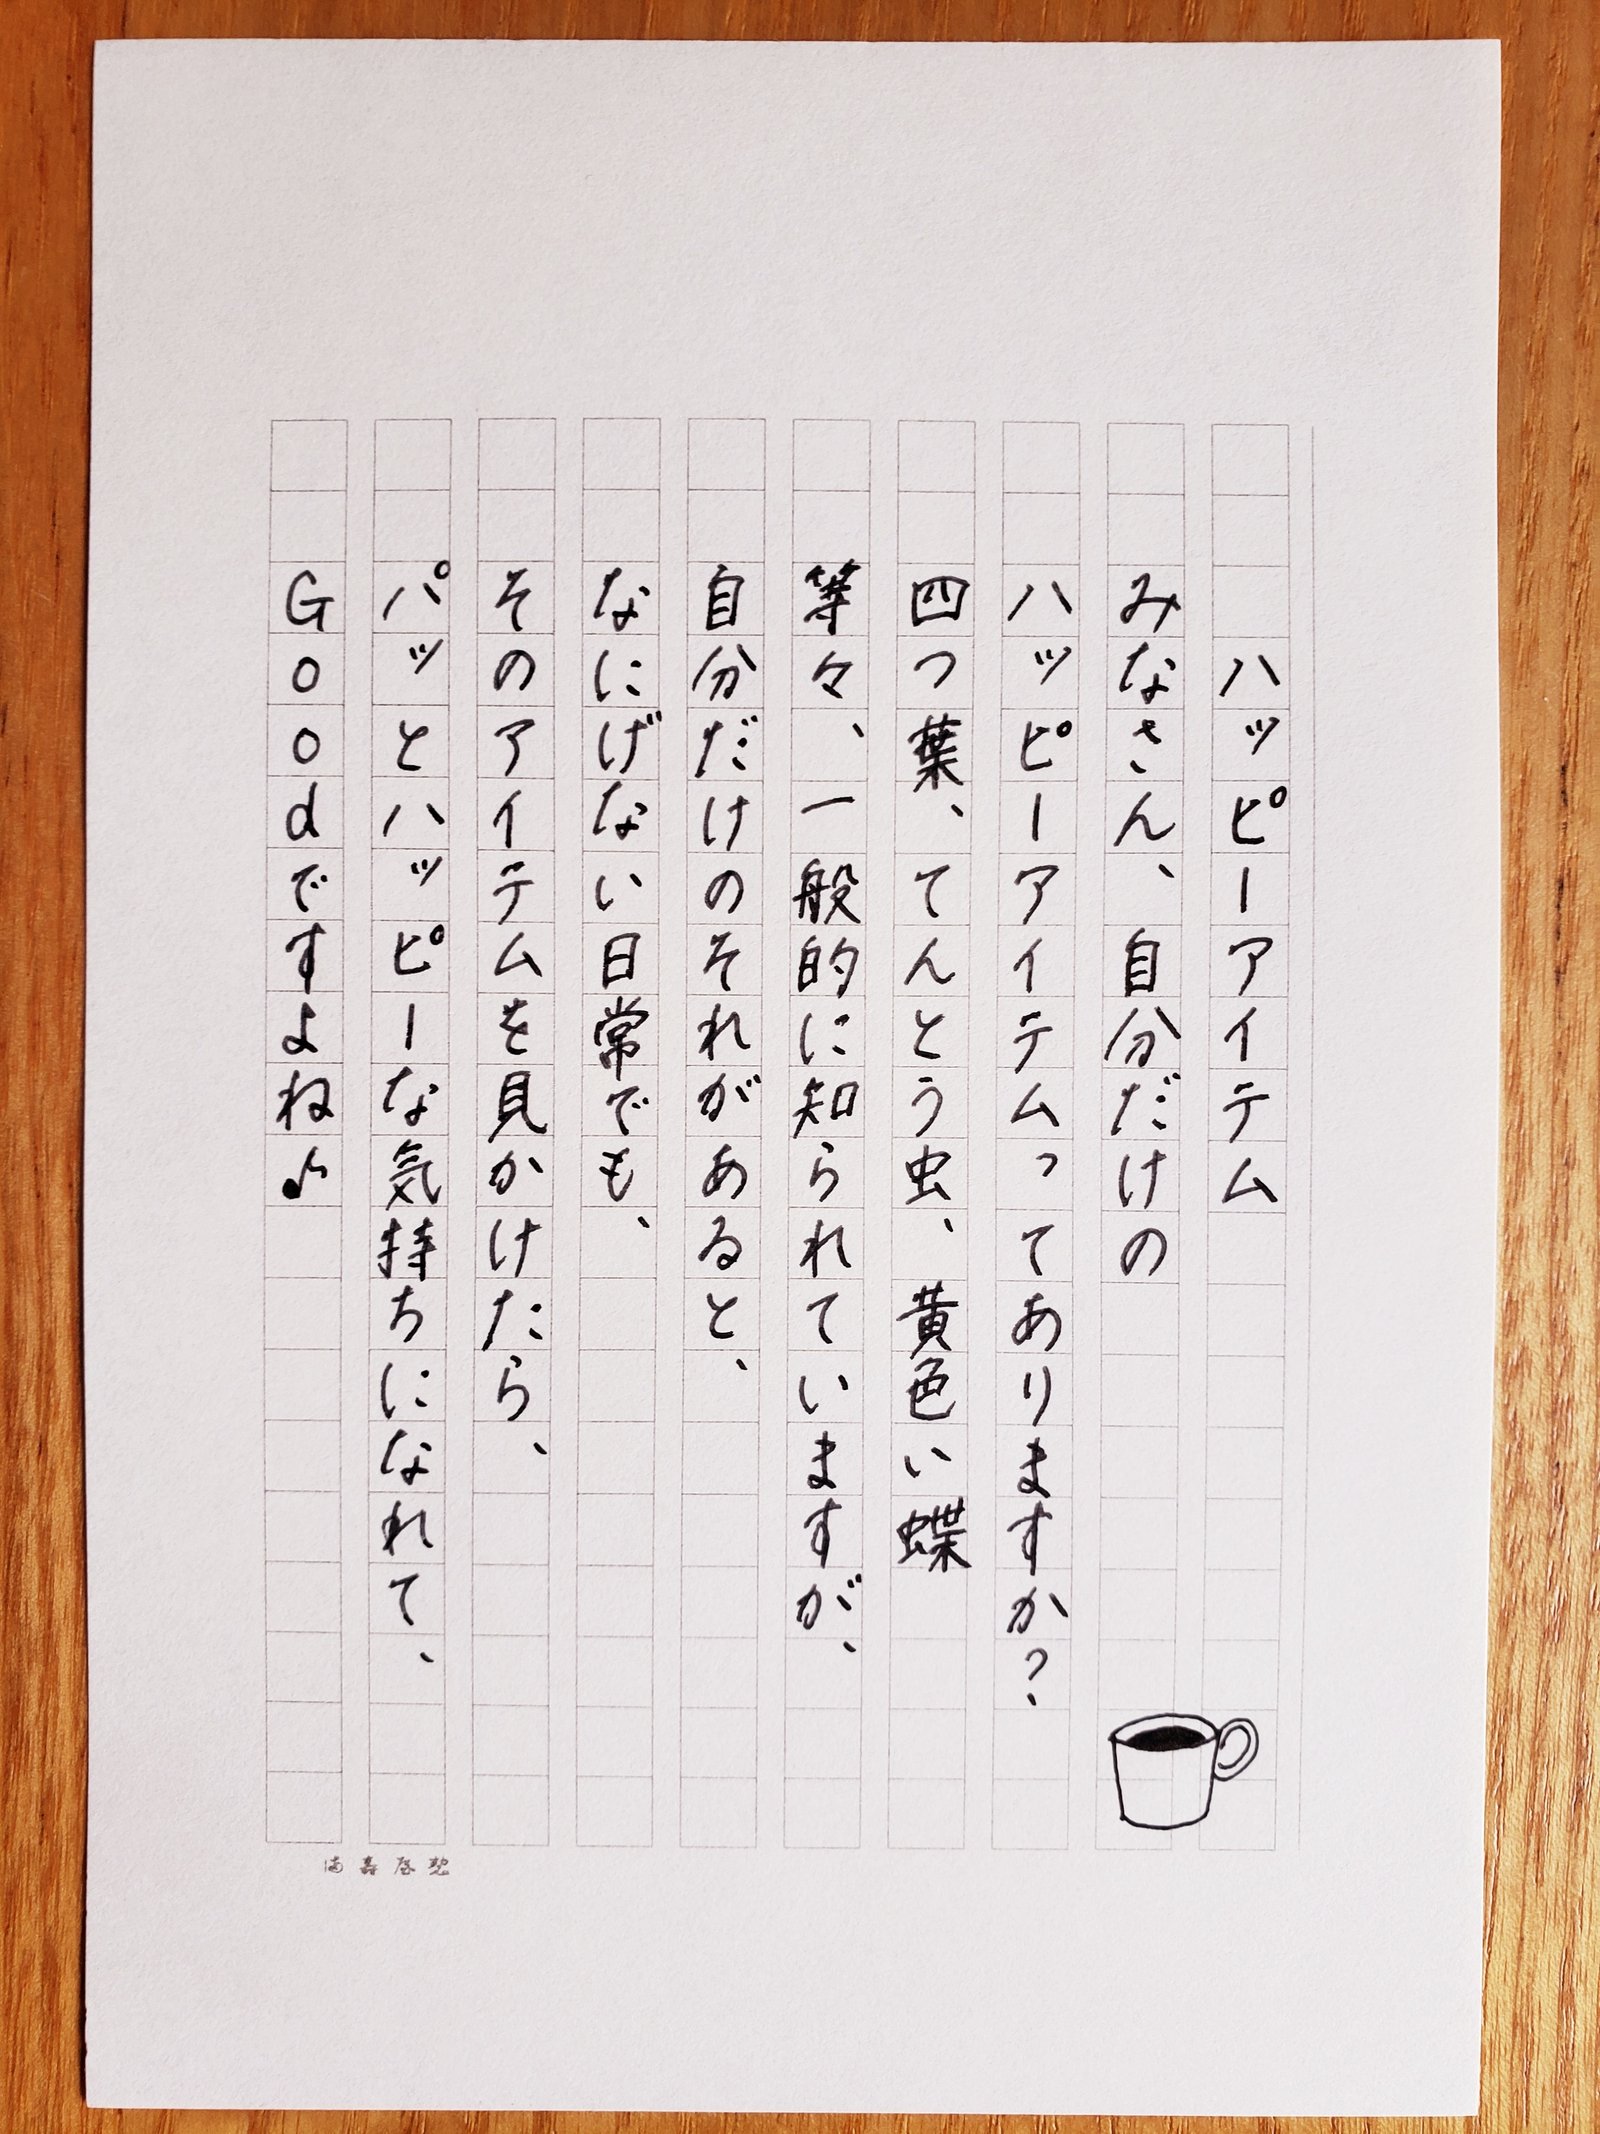 ハッピーアイテム
みなさん、自分だけの
ハッピーアイテムってありますか?
四つ葉、てんとう虫、黄色い蝶
等々、一般的に知られていますが、
自分だけのそれがあると、
なにげない日常でも、
そのアイテムを見かけたら、
パッとハッピーな気持ちになれて、
Goodですよね♪